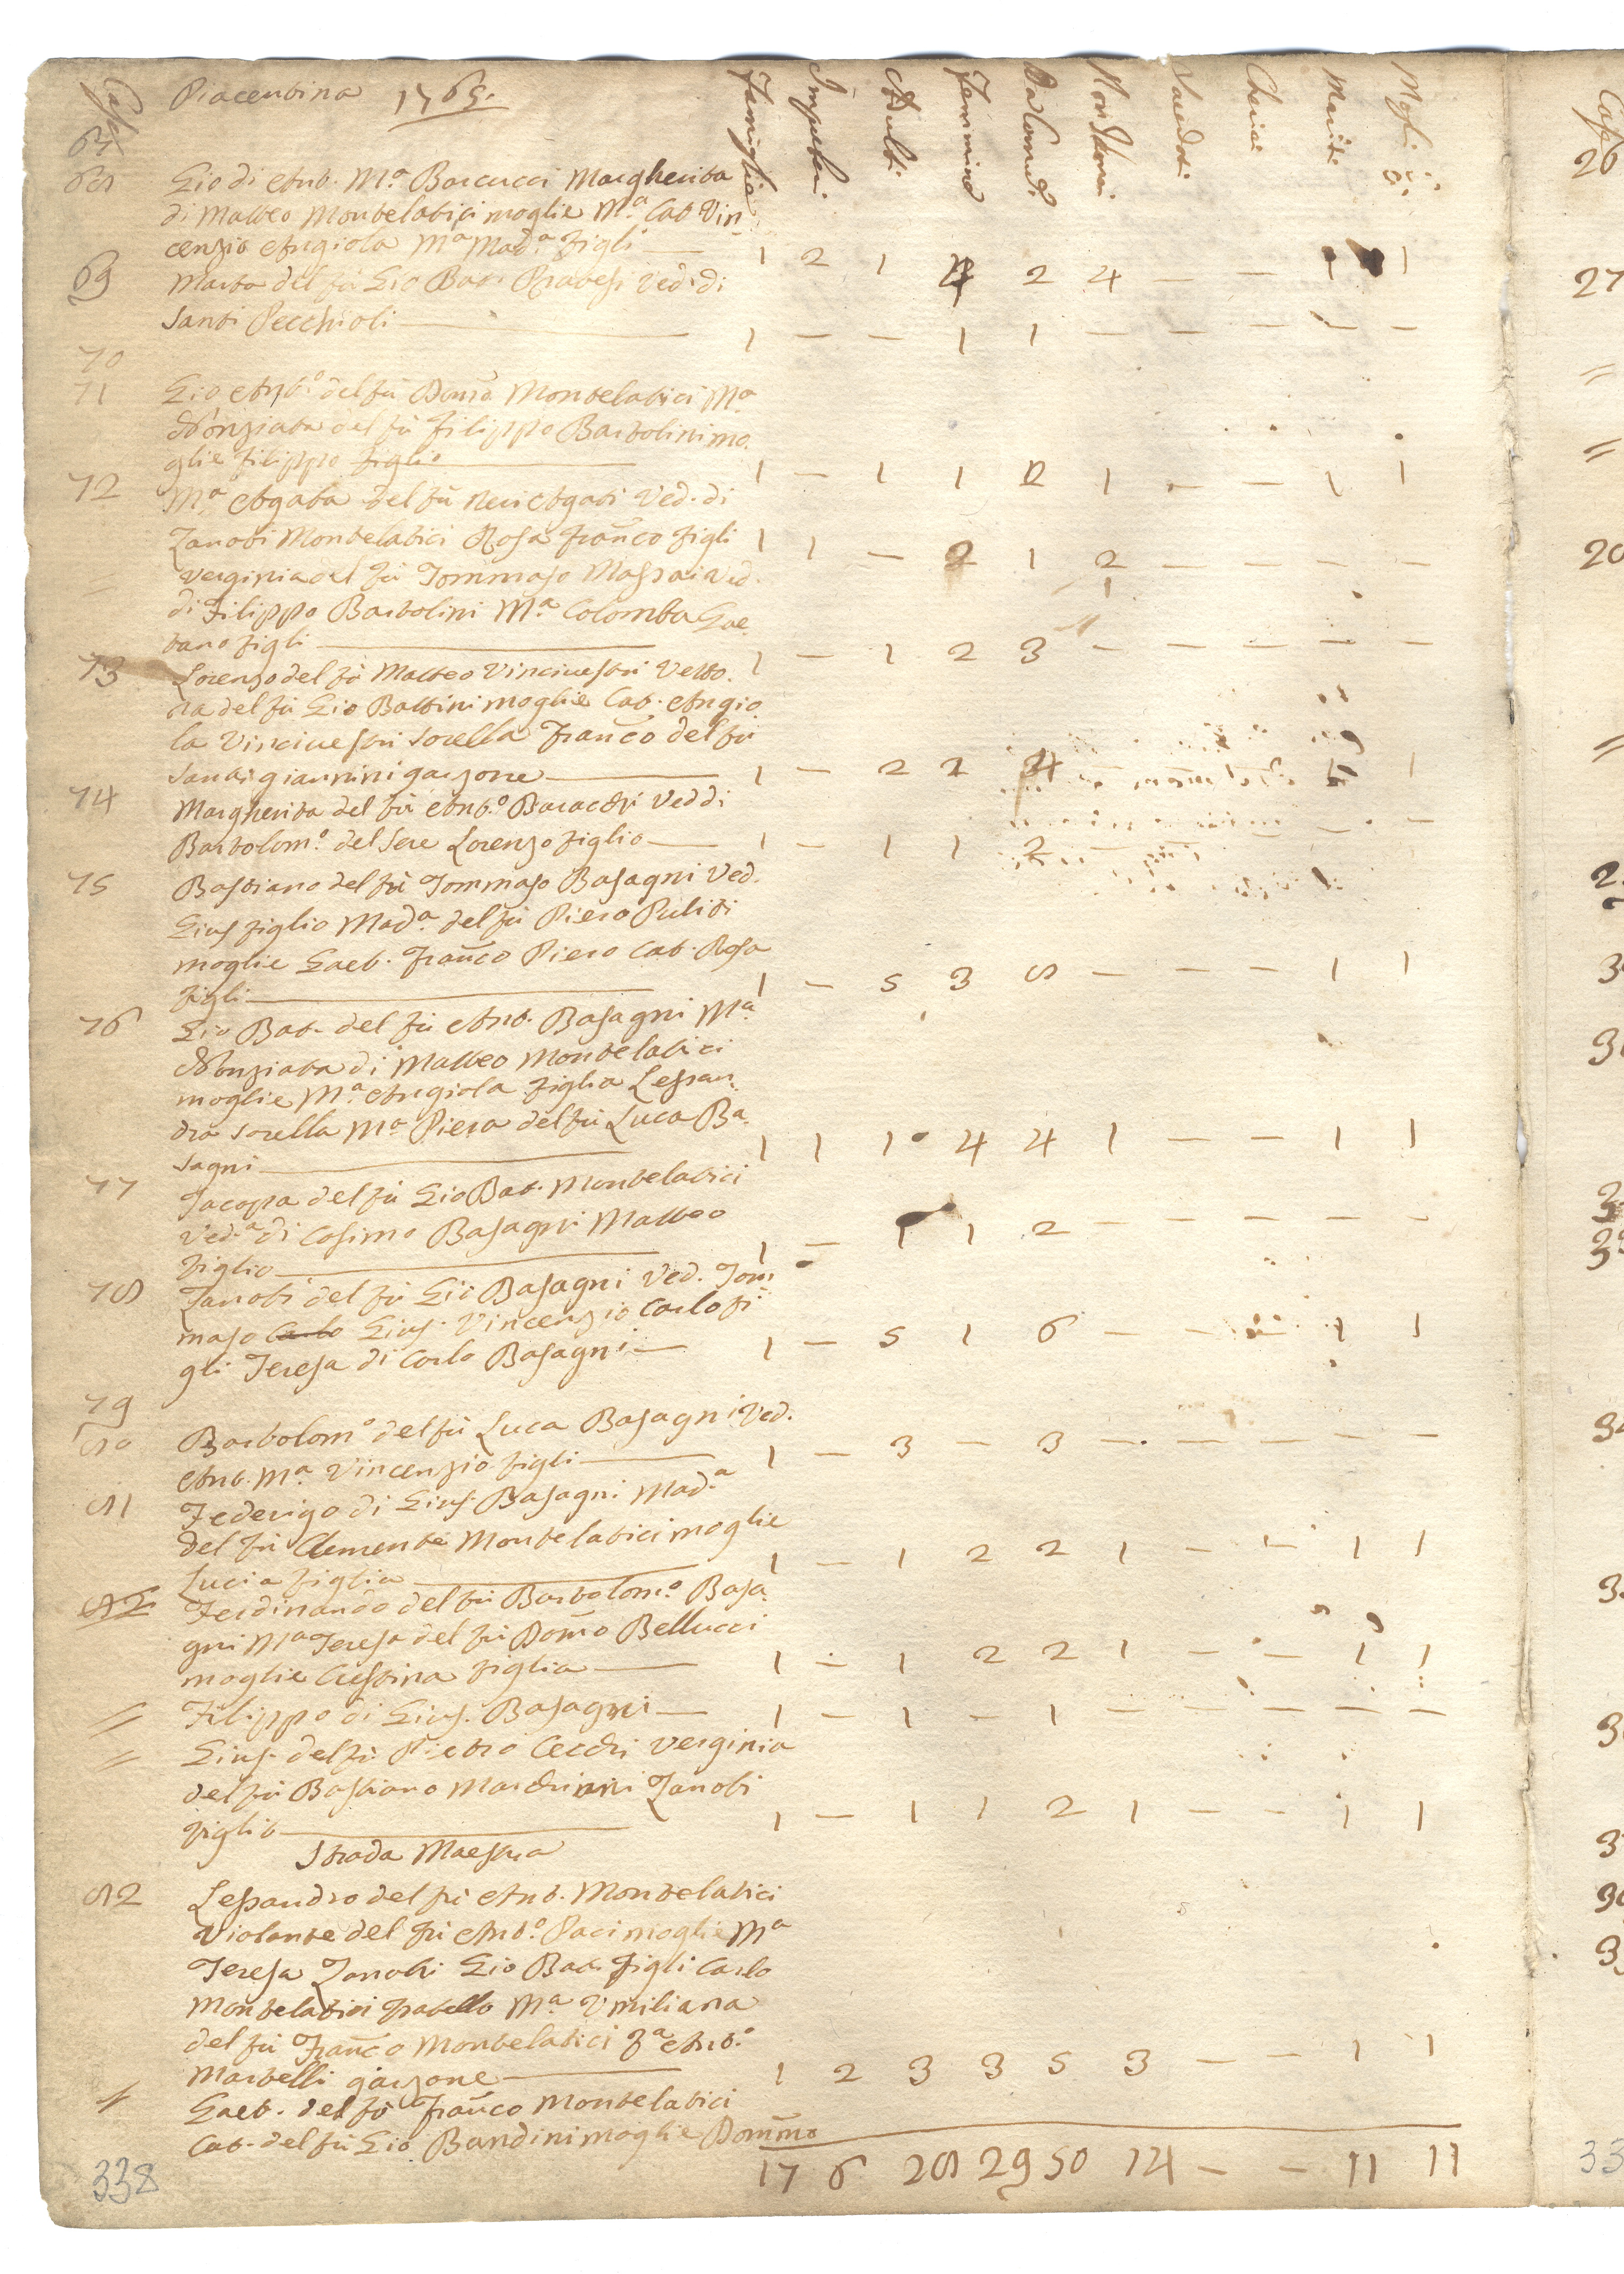 Case Piacentina 1765. Famiglie Impuberi Adulti Femmine Da Comun: Non Comuni Sacerdoti Cherici Mariti Mogli
67
68 Gio di Ant. M.a Barcucci Margherita
di Matteo Montelatici moglie M.a Cat Vin
cenzio Angiola M.a Mad.a figli — 1 2 1 4 2 4 — — 1 1
69 Marta del fù Gio Bat. Pratesi Ved. di
Santi Pecchioli — 1 — — 1 1 — — — — —
70
71 Gio Ant.o del fù Dom.co Montelatici M.a
Nonziata del fù Filippo Bartolini mo
glie Filippo figlio — 1 — 1 1 2 1 — — 1 1
72 M.a Agata del fù Neri Agati Ved. di
Zanobi Montelatici Rosa Fran.co figli 1 1 — 2 1 2 — — — —
= Verginia del fù Tommaso Massai Ved.
di Filippo Bartolini M.a Colomba Gae
tano figli — 1 — 1 2 3 — — — — —
73 Lorenzo del fù Matteo Vincinestri Vetto.
ria del fù Gio Battini moglie Cat. Angio
la Vincinestri sorella Fran.co del fù
Santi giannini garzone — 1 — 2 2 4 — — — 1 1
74 Margherita del fù Ant.o Baracchi Ved di
Bartolom.o del Sere Lorenzo figlio — 1 — 1 1 2 — — — — —
75 Bastiano del fù Tommaso Basagni Ved.
Gius figlio Mad.a del fù Piero Puliti
moglie Gaet. Fran.co Piero Cat. Rosa
figli — 1 — 5 3 8 — — — 1 1
76 Gio Bat. del fù Ant. Basagni M.a
Nonziata di Matteo Montelatici
moglie M.a Angiola figlia Lessan
dra sorella M.a Piera del fù Luca Ba
sagni — 1 1 1 4 4 1 — — 1 1
77 Jacopa del fù Gio Bat. Montelatici
Ved.a di Cosimo Basagni Matteo
figlio — 1 — 1 1 2 — — — — —
78 Zanobi del fù Gio Basagni Ved. Tom
maso Carlo Gius. Vincenzio Carlo fi
gli Teresa di Carlo Basagni — 1 — 5 1 6 — — — 1 1
79
80 Bartolom.o del fù Luca Basagni Ved.
Ant. M.a Vincenzio figli — 1 — 3 — 3 — — — — —
81 Federigo di Gius. Basagni Mad.a
del fù Clemente Montelatici moglie
Lucia figlia — 1 — 1 2 2 1 — — 1 1
82 Ferdinando del fù Bartolom.o Basa
gni M.a Teresa del fù Dom.co Bellucci
moglie Crestina figlia — 1 — 1 2 2 1 — — 1 1
= Filippo di Gius. Basagni — 1 — 1 — 1 — — — — —
= Gius. del fù Pietro Cecchi Verginia
del fù Bastiano Marchianni Zanobi
figlio — 1 — 1 1 2 1 — — 1 1
Strada Maestra
82 Lessandro del fù Ant. Montelatici
Violante del fù Ant.o Paci moglie M.a
Teresa Zanobi Gio Bat. figli Carlo
Montelatici fratello M.a Umiliana
del fù Fran.co Montelatici f.a Ant.o
Martelli garzone — 1 2 3 3 5 3 — — 1 1
= Gaet. del fù Fran.co Montelatici
Cat. del fù Gio Bandini moglie Dom.co
338 17 6 28 29 50 14 — — 11 11